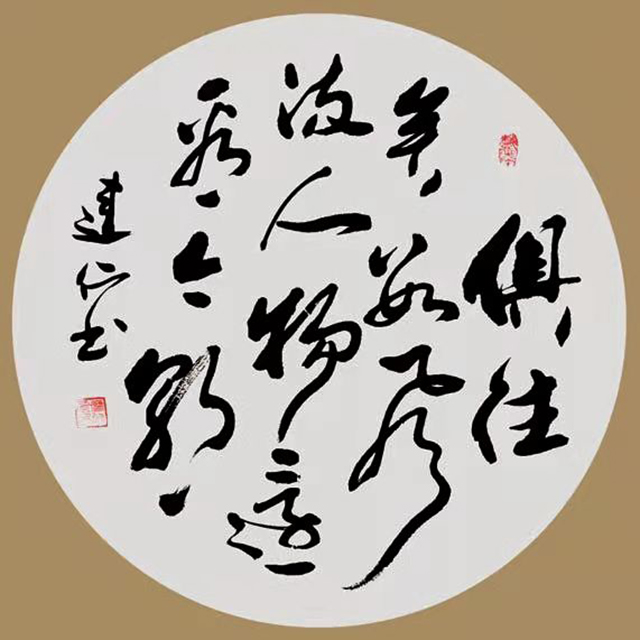 俱往
矣数风
流人物還
看今朝
书